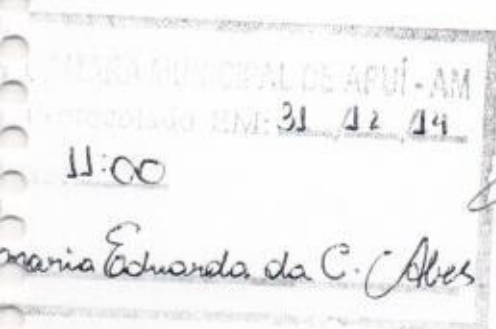 CÂMARA MUNICIPAL DE APUÍ - AM
Protocolado EM: 31 / 12 / 14
11:00
maria Eduarda da C. Alves